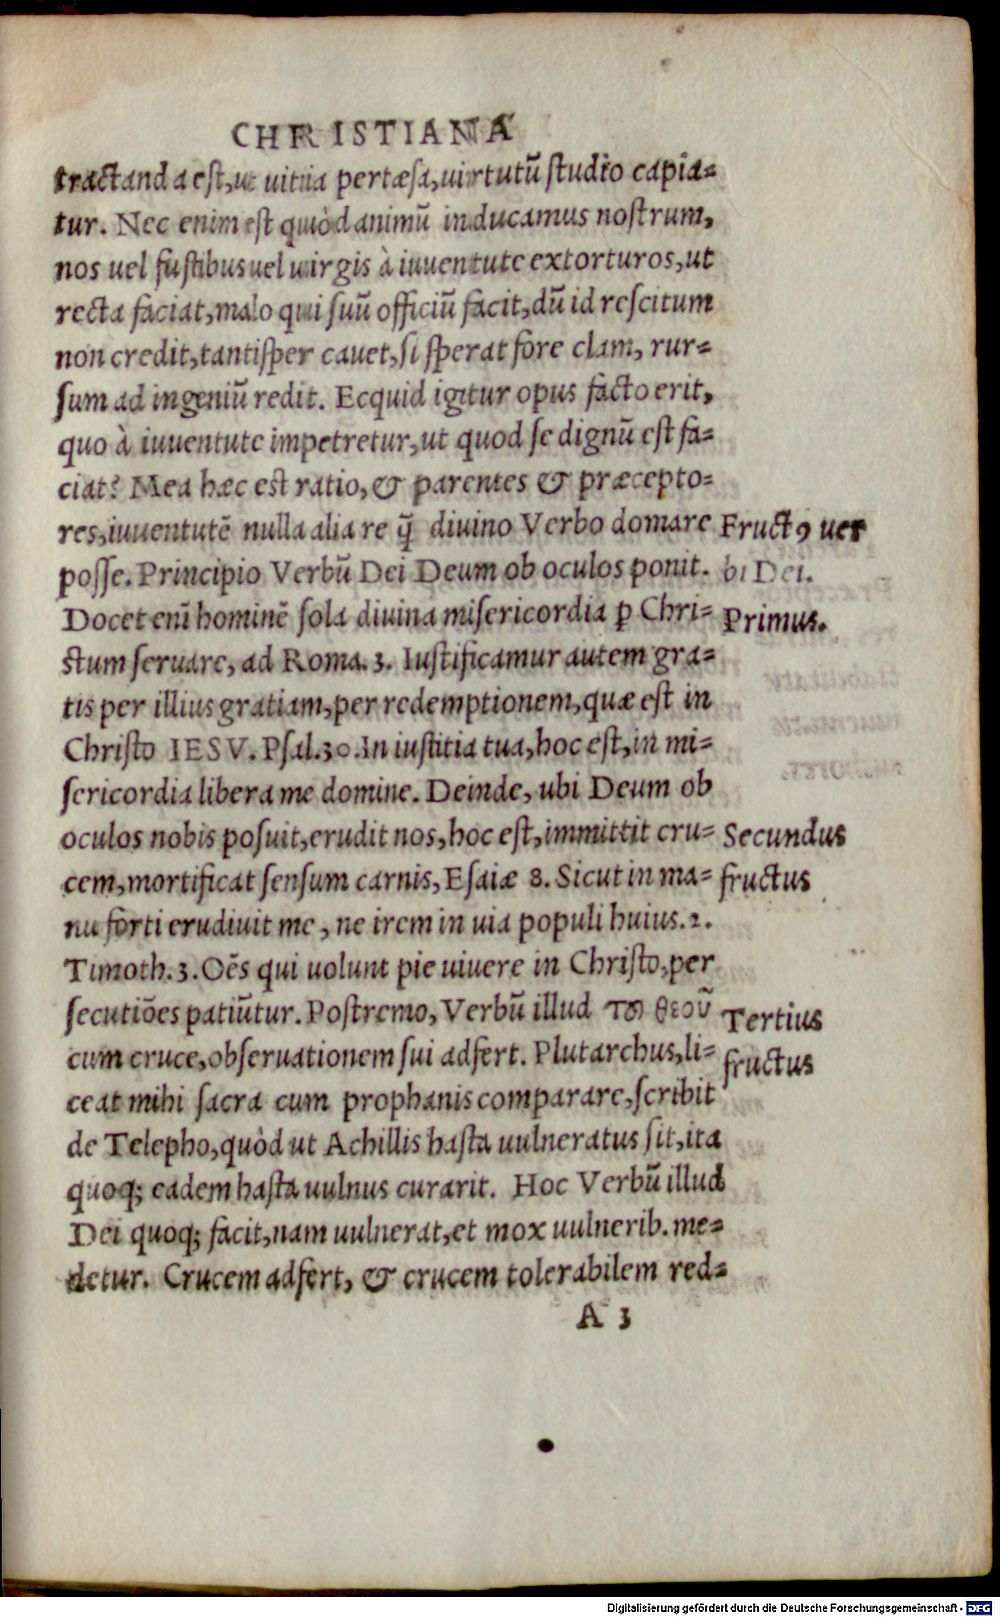 CHRISTIANA
tractanda est, ut uitiia pertæsa, uirtutũ studio capia-
tur. Nec enim est quòd animũ inducamus nostrum,
nos uel fustibus uel uirgis à iuuentute extorturos, ut
recta faciat, malo qui suũ officiũ facit, dũ id rescitum
non credit, tantisper cauet, si sperat fore clam, rur-
sum ad ingeniũ redit. Ecquid igitur opus facto erit,
quo à iuuentute impetretur, ut quod se dignũ est fa-
ciat? Mea hæc est ratio, & parentes & præcepto-
res, iuuentutẽ nulla alia re q̃ diuino Verbo domare
Fructꝰ uer
posse. Principio Verbũ Dei Deum ob oculos ponit.
bi Dei.
Docet enĩ hominẽ sola diuina misericordia ꝑ Chri-
Primus.
stum seruare, ad Roma. 3. Iustificamur autem gra-
tis per illius gratiam, per redemptionem, quæ est in
Christo IESV. Psal. 30. In iustitia tua, hoc est, in mi-
sericordia libera me domine. Deinde, ubi Deum ob
oculos nobis posuit, erudit nos, hoc est, immittit cru-
Secundus
cem, mortificat sensum carnis, Esaiæ 8. Sicut in ma-
fructus
nu forti erudiuit me, ne irem in uia populi huius. 2.
Timoth. 3. Oẽs qui uolunt pie uiuere in Christo, per
secutiões patiũtur. Postremo, Verbũ illud τοῦ θεοῦ
Tertius
cum cruce, obseruationem sui adfert. Plutarchus, li-
fructus
ceat mihi sacra cum prophanis comparare, scribit
de Telepho, quòd ut Achillis hasta uulneratus sit, ita
quoq; eadem hasta uulnus curarit. Hoc Verbũ illud
Dei quoq; facit, nam uulnerat, et mox uulnerib. me-
detur. Crucem adfert, & crucem tolerabilem red-
A 3
Digitalisierung gefördert durch die Deutsche Forschungsgemeinschaft - DFG